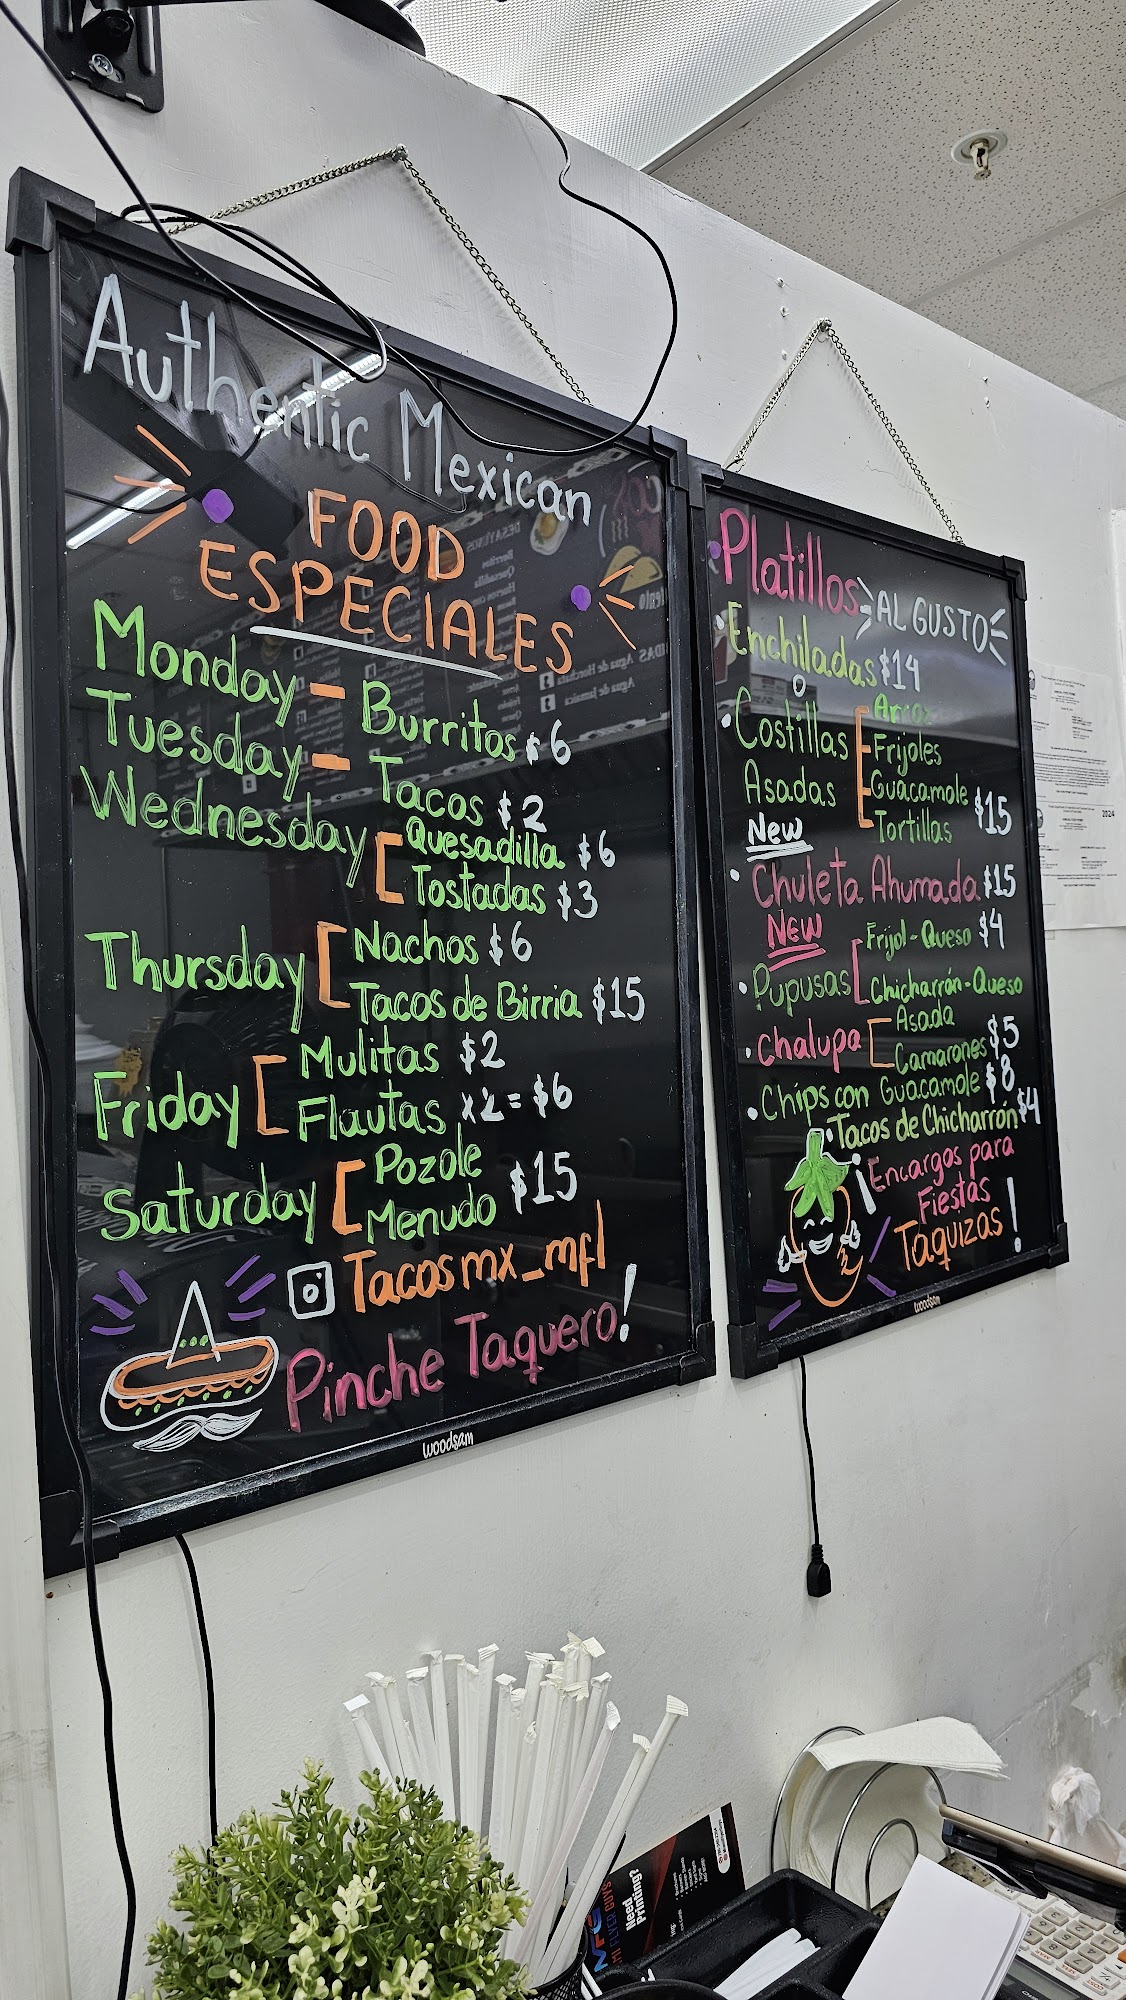 Authentic Mexican
FOOD
ESPECIALES
Monday - Burritos $6
Tuesday - Tacos $2
Wednesday [ Quesadilla $6
Tostadas $3
Thursday [ Nachos $6
Tacos de Birria $15
Friday [ Mulitas $2
Flautas x2 = $6
Saturday [ Pozole
Menudo $15
Tacosmx_mfl
Pinche Taquero!
woodsam
Platillos AL GUSTO
Enchiladas $14
• Costillas Asadas [ Arroz
Frijoles
Guacamole
Tortillas $15
New
• Chuleta Ahumada $15
New
• Pupusas [ Frijol-Queso $4
Chicharrón-Queso
• Chalupa [ Asada
Camarones $5
• Chips con Guacamole $8
• Tacos de Chicharrón $4
¡Encargos para
Fiestas
Taquizas!
woodsam
2024
Need
Printing?
FLYER GUYS